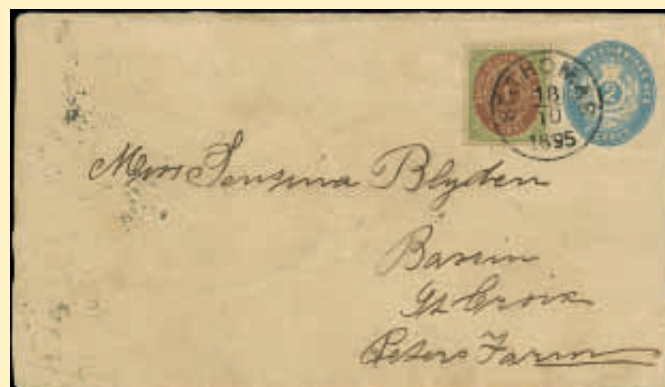 ST. THOMAS
18
10
1895
2
Miss Sensina Blyden
Bassin
St Croix
Peters Farm